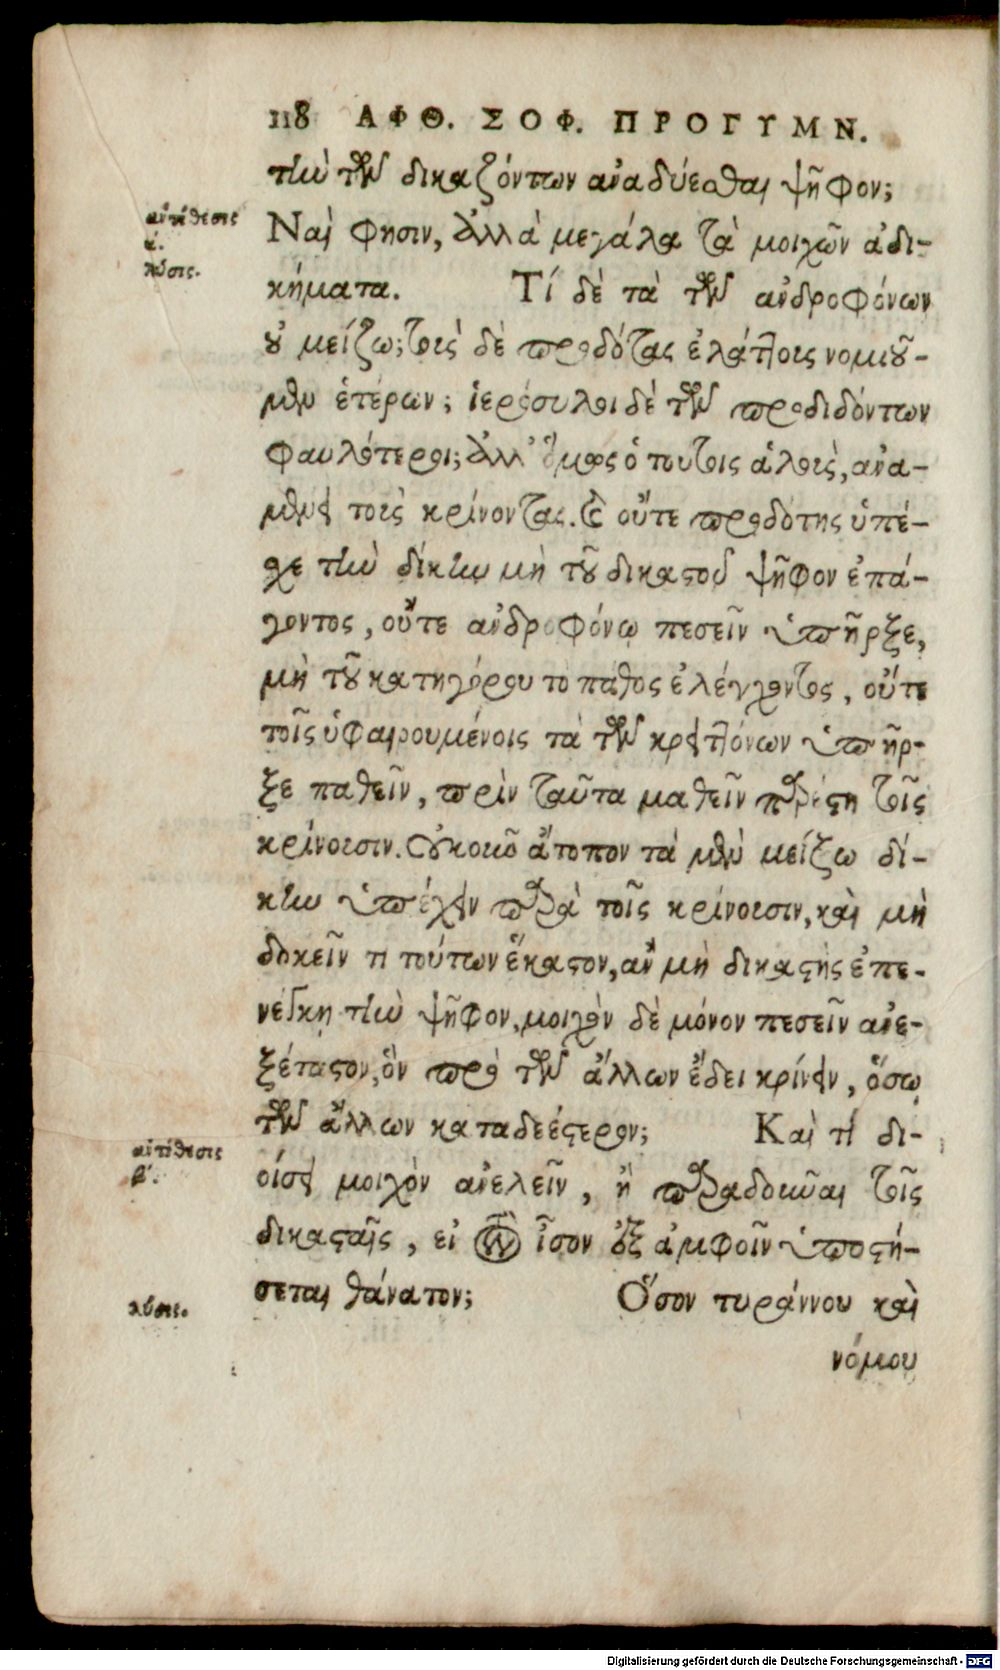 118 ΑΦΘ. ΣΟΦ. ΠΡΟΓΥΜΝ.
τὴν τῶν δικαζόντων ἀναδύεσθαι ψῆφον;
ἀντίθεσις
α΄.
Ναὶ φησιν, ἀλλὰ μεγάλα τὰ μοιχῶν ἀδι-
λύσις.
κήματα. Τί δὲ τὰ τῶν ἀνδροφόνων
οὐ μείζω; τοὺς δὲ προδότας ἐλάττους νομιοῦ-
μεν ἑτέρων; ἱερόσυλοι δὲ τῶν προδιδόντων
φαυλότεροι; ἀλλ' ὅμως ὁ τουτοις ἁλοὺς, ἀνα-
μένει τοὺς κρίνοντας. καὶ οὔτε προδότης ὑπέ-
χε τὴν δίκην μὴ τοῦ δικαστοῦ ψῆφον ἐπά-
γοντος, οὔτε ἀνδροφόνῳ πεσεῖν ὑπῆρξε,
μὴ τοῦ κατηγόρου τὸ πάθος ἐλέγχοντος, οὔτε
τοῖς ὑφαιρουμένοις τὰ τῶν κρειττόνων ὑπῆρ-
ξε παθεῖν, πρὶν ταῦτα μαθεῖν παρέστη τοῖς
κρίνουσιν. Οὐκοῦν ἄτοπον τὰ μὲν μείζω δί-
κην ὑπέχειν παρὰ τοῖς κρίνουσιν, καὶ μὴ
δοκεῖν τι τούτων ἕκαστον, ἂν μὴ δικαστὴς ἐπε-
νέγκη τὴν ψῆφον, μοιχὸν δὲ μόνον πεσεῖν ἀνε-
ξέταστον, ὃν πρὸ τῶν ἄλλων ἔδει κρίνειν, ὅσῳ
τῶν ἄλλων καταδεέστερον; Καὶ τί δι-
ἀντίθεσις
β΄.
οίσει μοιχὸν ἀνελεῖν, ἢ παραδοῦναι τοῖς
δικασταῖς, εἰ τὸν ἶσον ἐξ ἀμφοῖν ὑποστή-
λύσις.
σεται θάνατον; Ὅσον τυράννου καὶ
νόμου
Digitalisierung gefördert durch die Deutsche Forschungsgemeinschaft - DFG